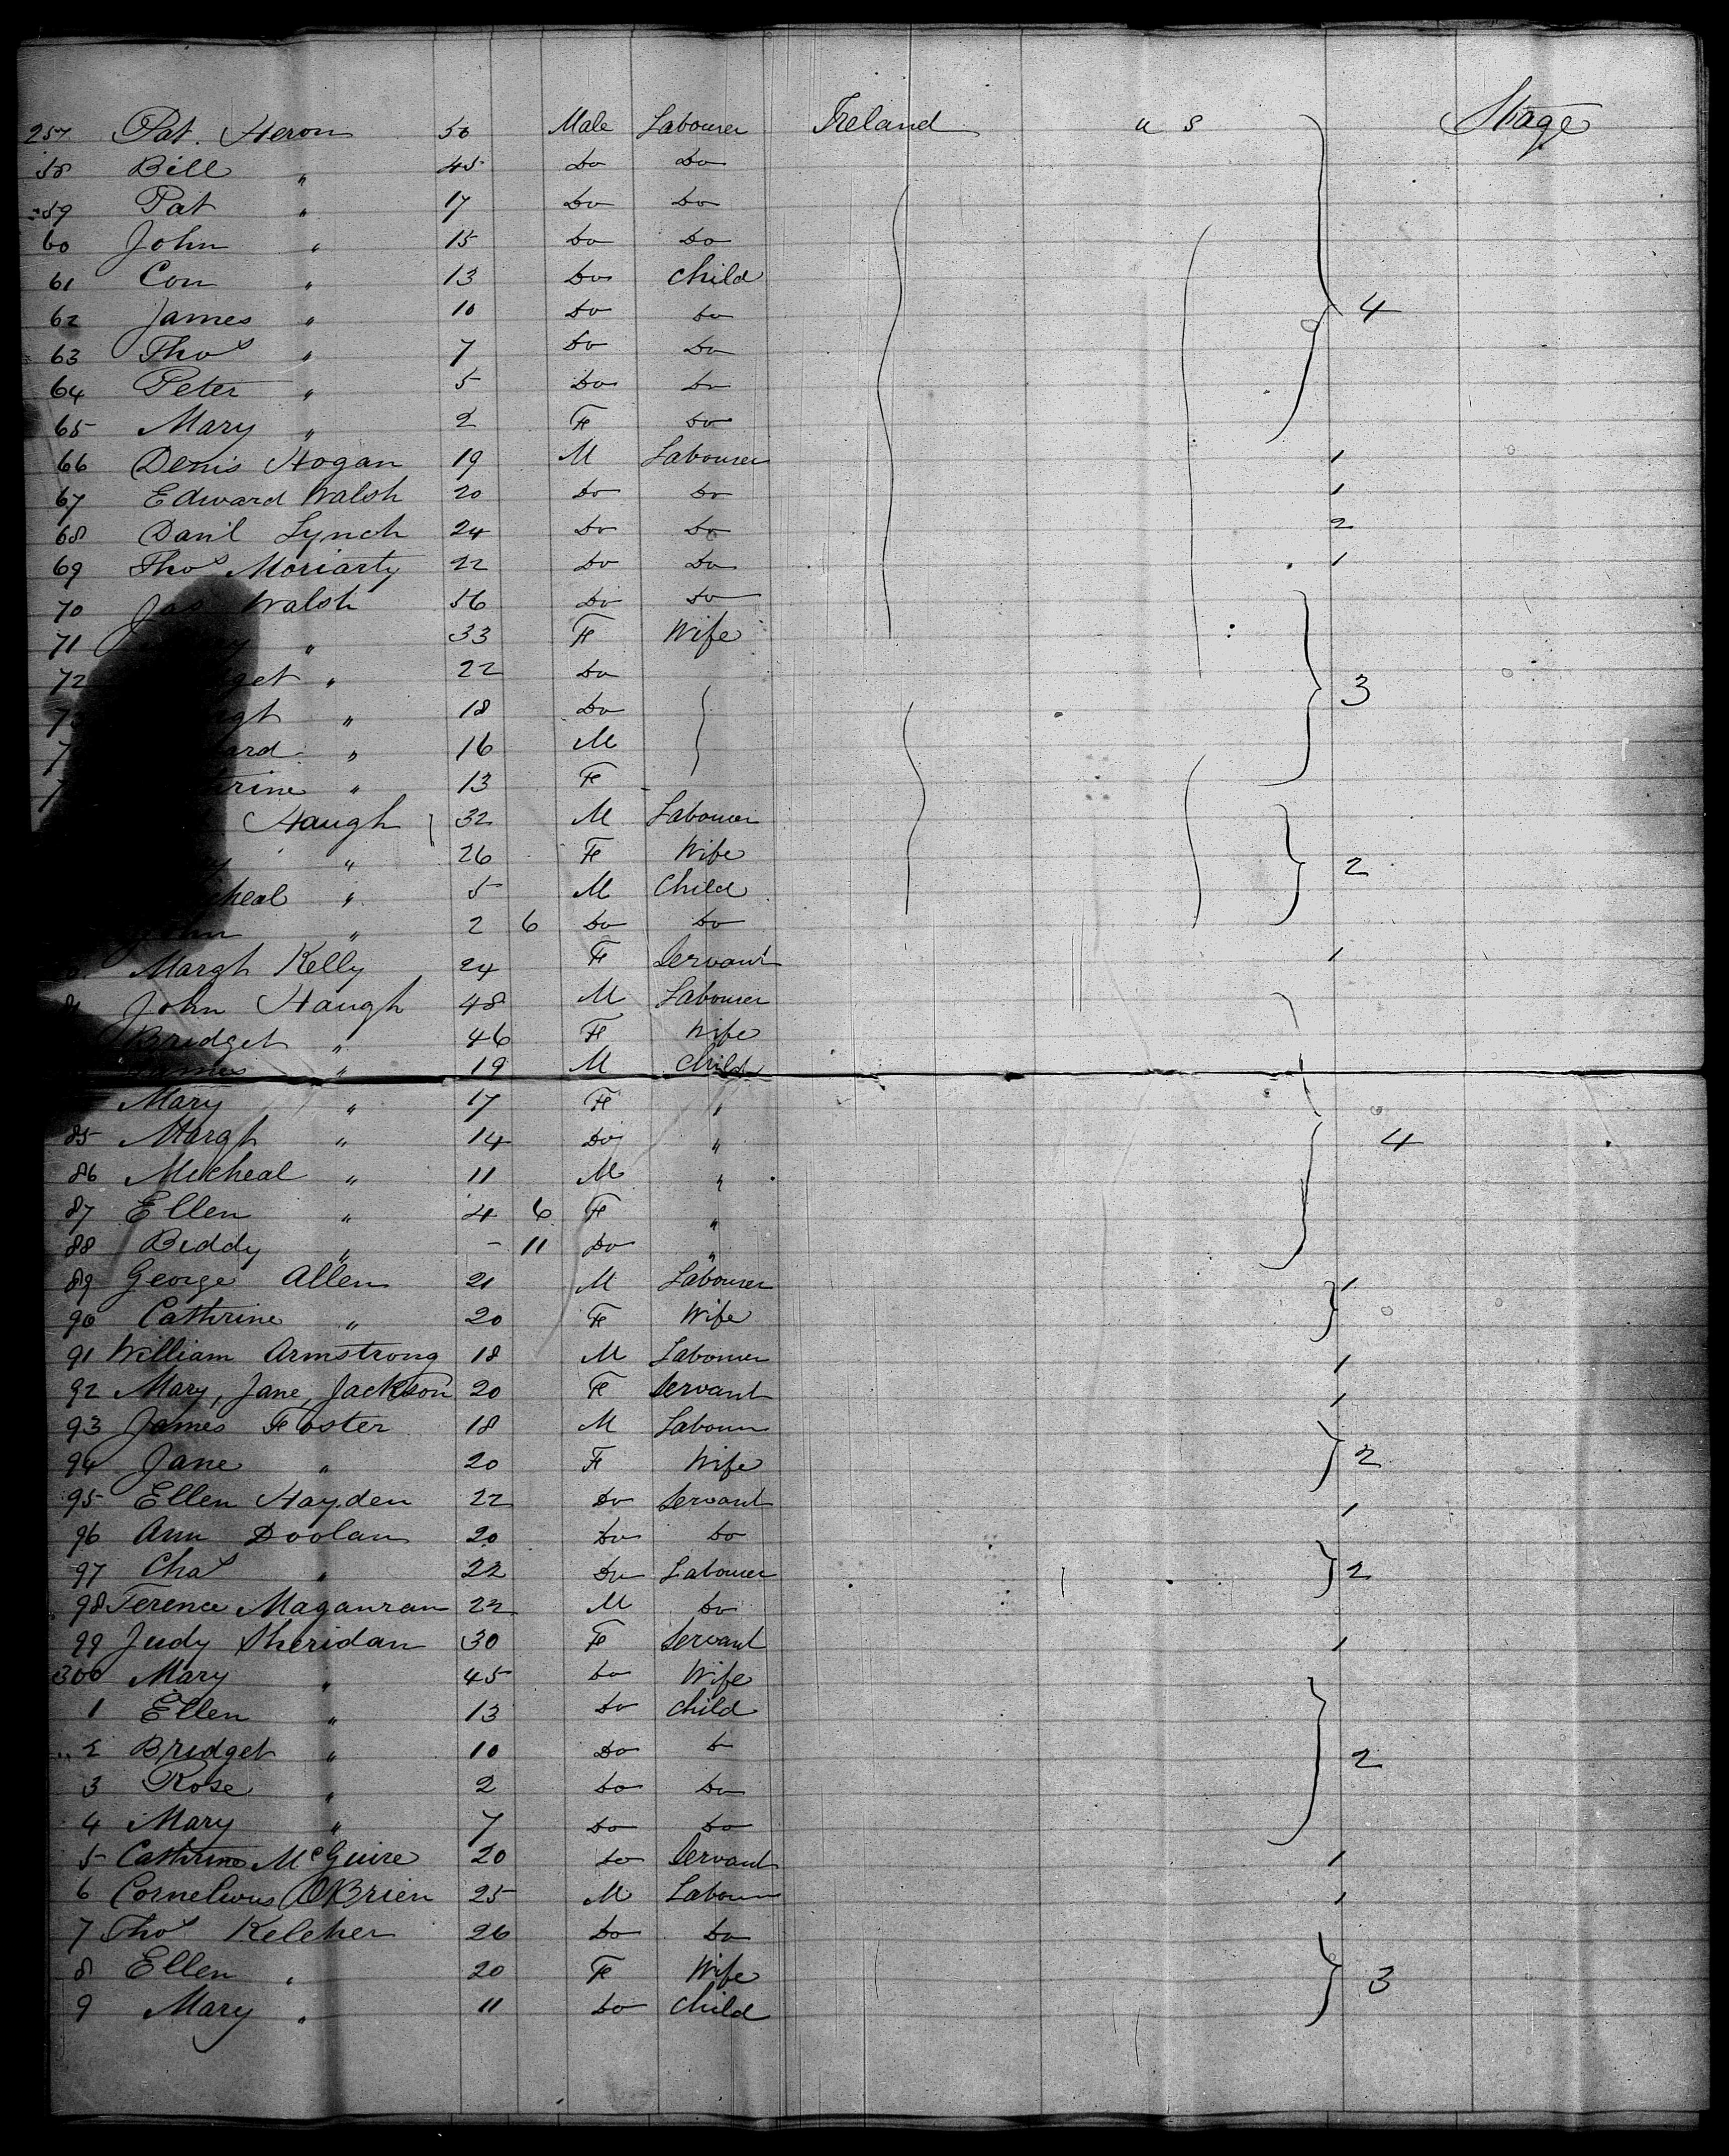 257 Pat. Heron 50 Male Labourer Ireland U S Stage
58 Bill " 45 Do Do
259 Pat " 17 Do Do
60 John " 15 Do Do
61 Con " 13 Do Child
62 James " 10 Do Do 4
63 Thos " 7 Do Do
64 Peter " 5 Do Do
65 Mary " 2 Fe Do
66 Denis Hogan 19 M Labourer 1
67 Edward Walsh 20 Do Do 1
68 Danl Lynch 24 Do Do 2
69 Thos Moriarty 22 Do Do 1
70 Jas Walsh 56 Do Do
71 " 33 Fe Wife
72 " 22 Do
" 18 Do 3
" 16 M
" 13 Fe
Haugh 32 M Labourer
" 26 Fe Wife 2
" 5 M Child
John " 2 6 Do Do
Margh Kelly 24 Fe Servant 1
John Haugh 48 M Labourer
Bridget " 46 Fe Wife
" 19 M Child
Mary " 17 Fe "
85 Margh " 14 Do " 4
86 Micheal " 11 M "
87 Ellen " 4 6 Fe "
88 Biddy " - 11 Do "
89 George Allen 21 M Labourer 1
90 Cathrine " 20 Fe Wife
91 William Armstrong 18 M Labourer 1
92 Mary, Jane, Jackson 20 Fe Servant 1
93 James Foster 18 M Labourer
94 Jane " 20 Fe Wife 2
95 Ellen Hayden 22 Do Servant 1
96 Ann Doolan 20 Do Do
97 Chas " 22 Do Labourer 2
98 Terence Magauran 22 M Do
99 Judy Sheridan 30 Fe Servant 1
300 Mary " 45 Do Wife
1 Ellen " 13 Do Child
2 Bridget " 10 Do Do 2
3 Rose " 2 Do Do
4 Mary " 7 Do Do
5 Cathrine McGuire 20 Do Servant 1
6 Cornelious OBrien 25 M Labourer 1
7 Thos Keleher 26 Do Do
8 Ellen " 20 Fe Wife 3
9 Mary " 11 Do Child